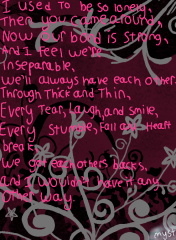 I used to be so lonely,
Then you came around,
Now our bond is strong,
And I feel we're
inseparable,
we'll always have each other
Through Thick and Thin,
Every Tear, laugh, and smile,
Every Stumble, Fall and Heart
break,
we got each others backs,
and I wouldn't have it any
other way.